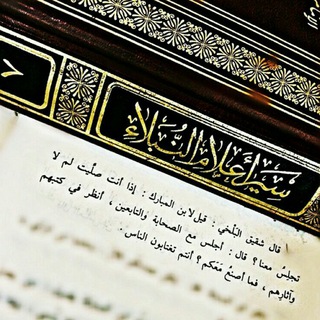 ٧
سير أعلام النبلاء
قال شقيق البلخي : قيل لابن المبارك : إذا أنت صلّيت لم لا
تجلِسُ معنا ؟ قال : أجلس مع الصحابة والتابعين ، أنظر في كتبهم
وآثارهم ، فما أصنَعُ مَعَكم ؟ أنتم تغتابون الناس .